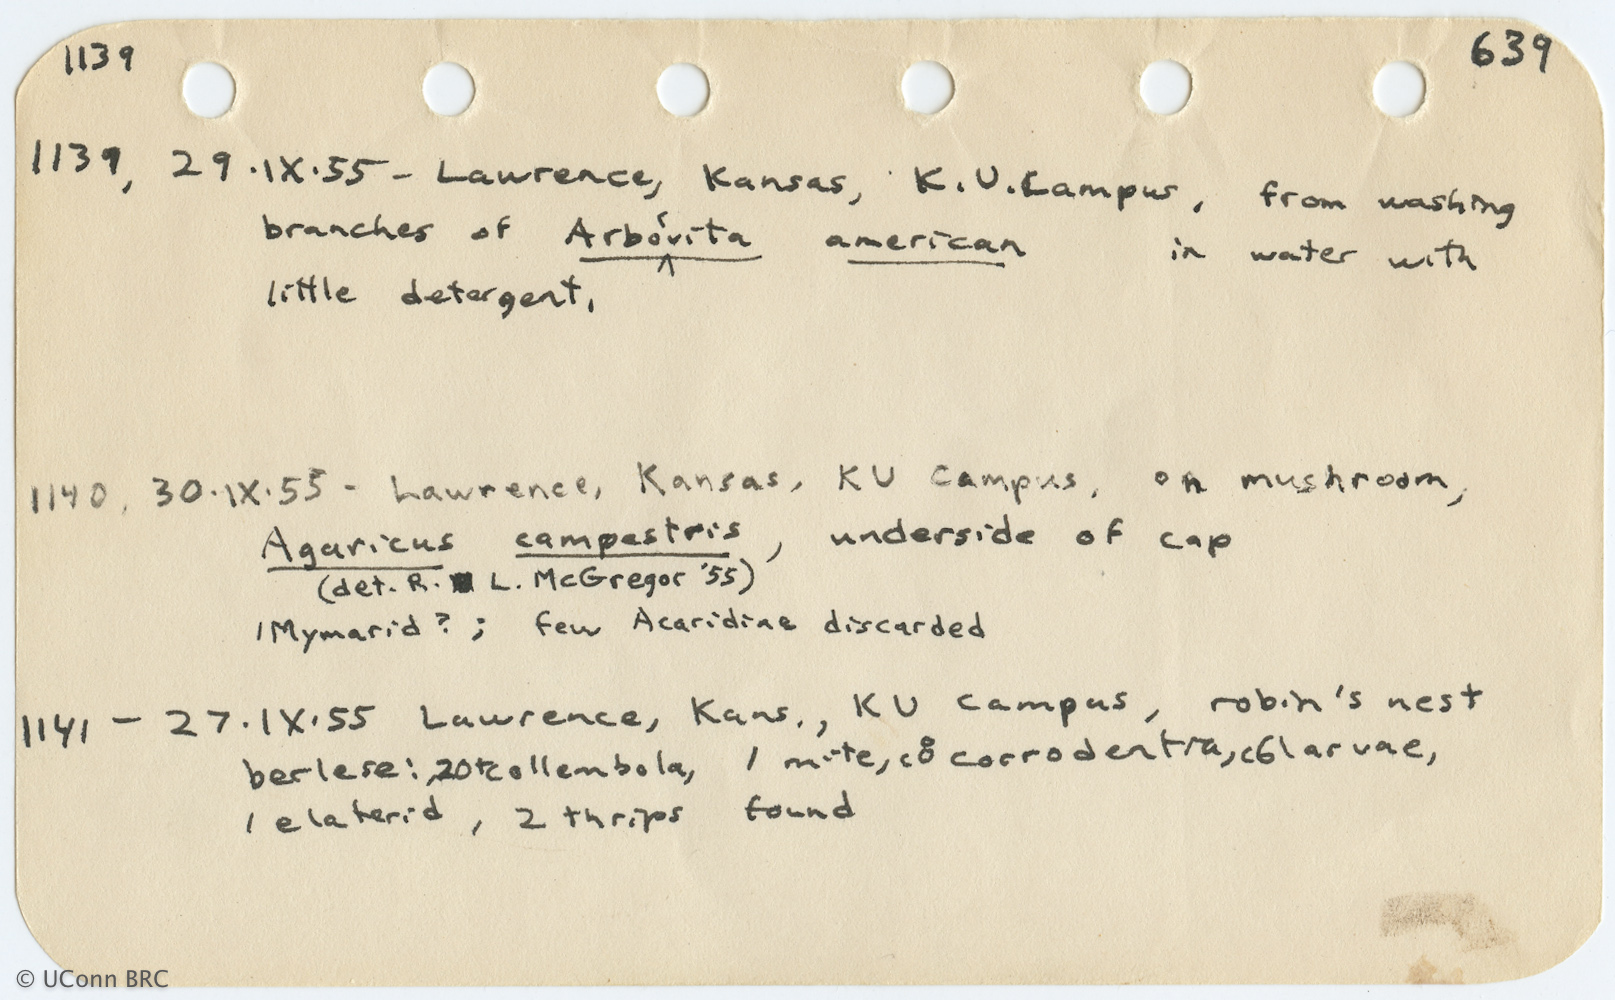 1139 639
1139, 29·IX·55 - Lawrence, Kansas, K.U. Campus, from washing
branches of Arborvita american in water with
little detergent.
1140, 30·IX·55 - Lawrence, Kansas, KU Campus, on mushroom,
Agaricus campestris, underside of cap
(det. R. L. McGregor '55)
1 Mymarid?; few Acaridiae discarded
1141 - 27·IX·55 Lawrence, Kans., KU Campus, robin's nest
berlese: 20± collembola, 1 mite, c8 corrodentia, c6 larvae,
1 elaterid, 2 thrips found
© UConn BRC